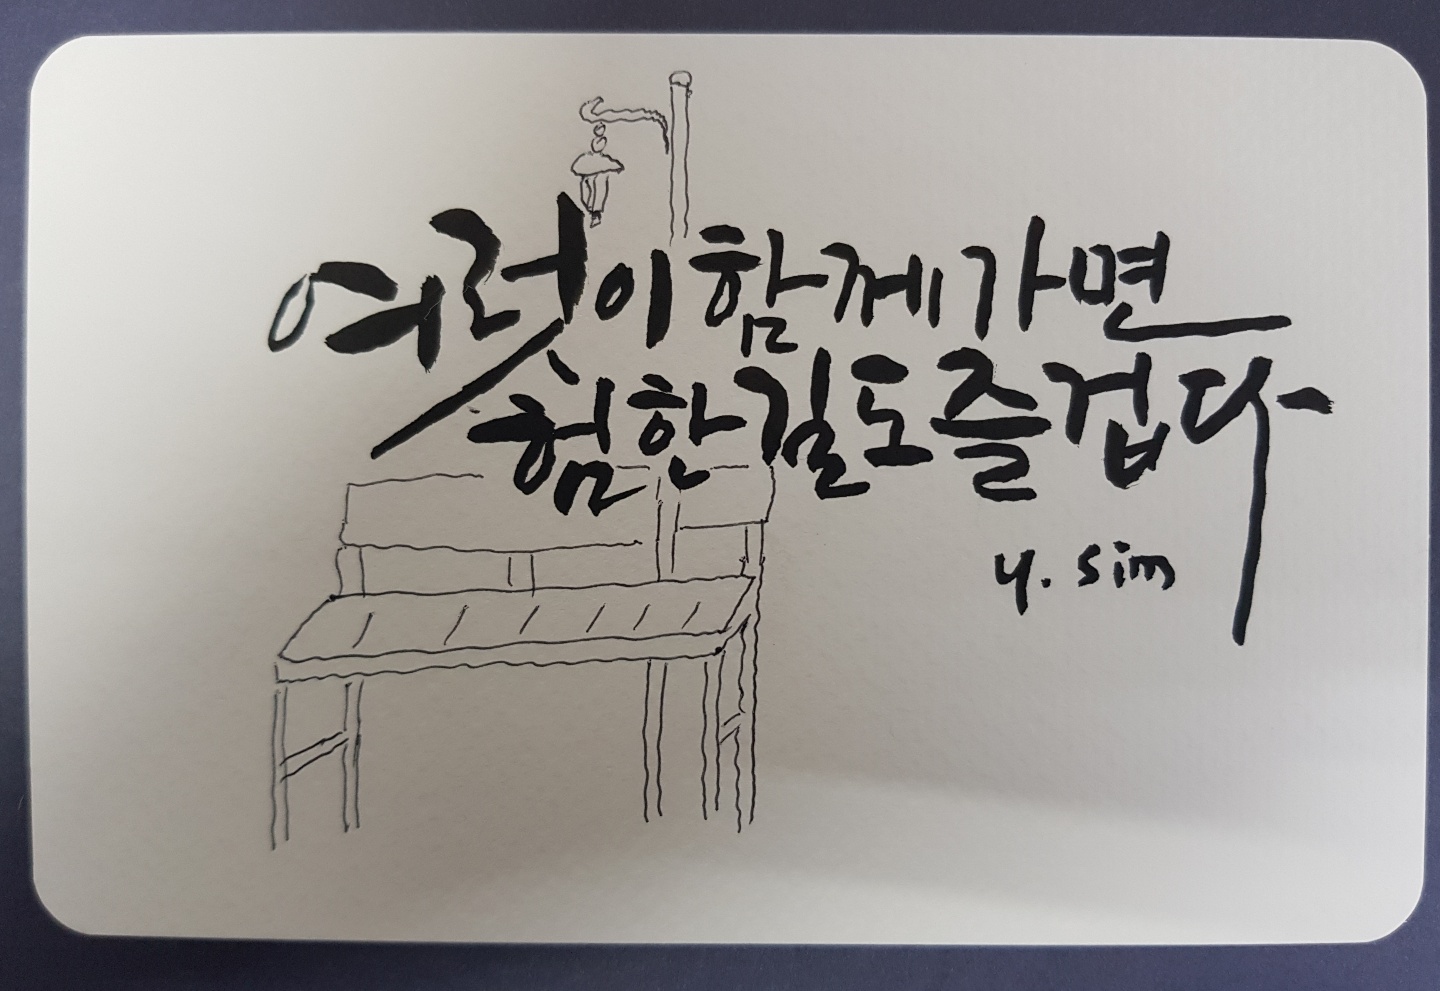 여럿이 함께 가면
험한 길도 즐겁다
y. sim